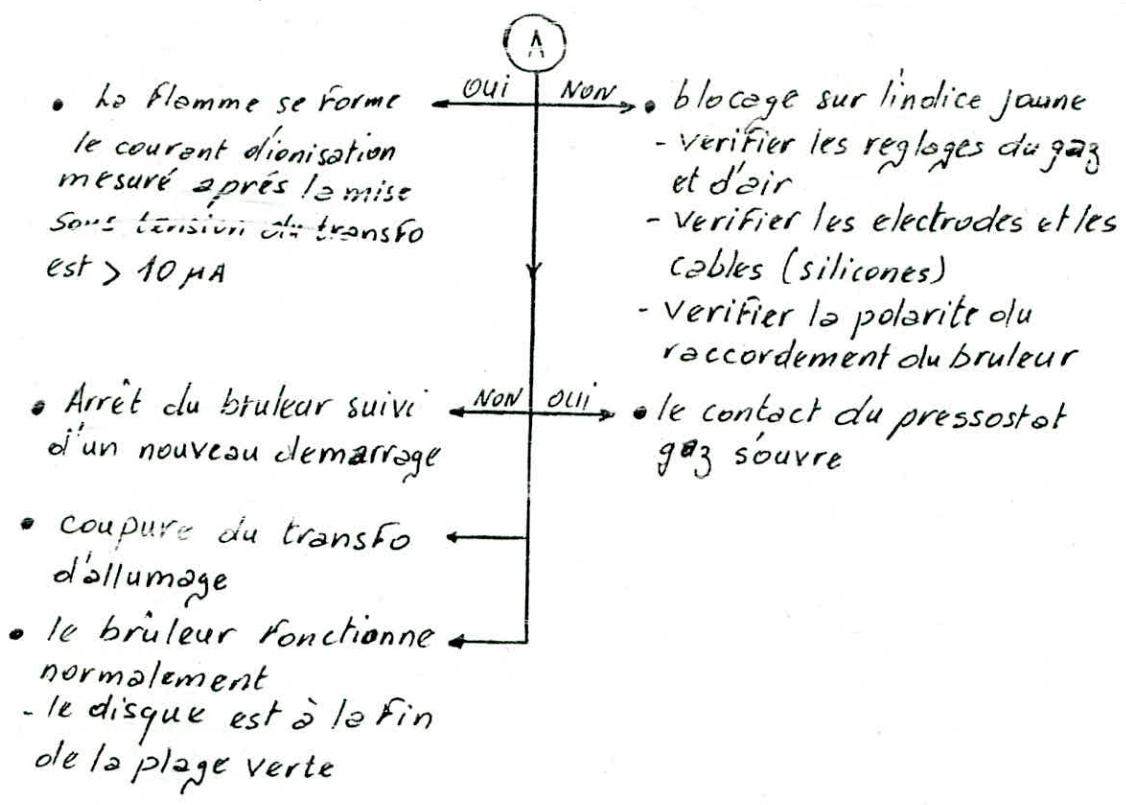 A
OUI NON
• La flamme se forme
le courant d'ionisation
mesuré aprés la mise
sous tension du transfo
est > 10 µA
• blocage sur l'indice jaune
- verifier les reglages du gaz
et d'air
- verifier les electrodes et les
cables (silicones)
- verifier la polarite du
raccordement du bruleur
NON OUI
• Arrêt du bruleur suivi
d'un nouveau demarrage
• le contact du pressostat
gaz s'ouvre
• coupure du transfo
d'allumage
• le brûleur fonctionne
normalement
- le disque est à la fin
de la plage verte